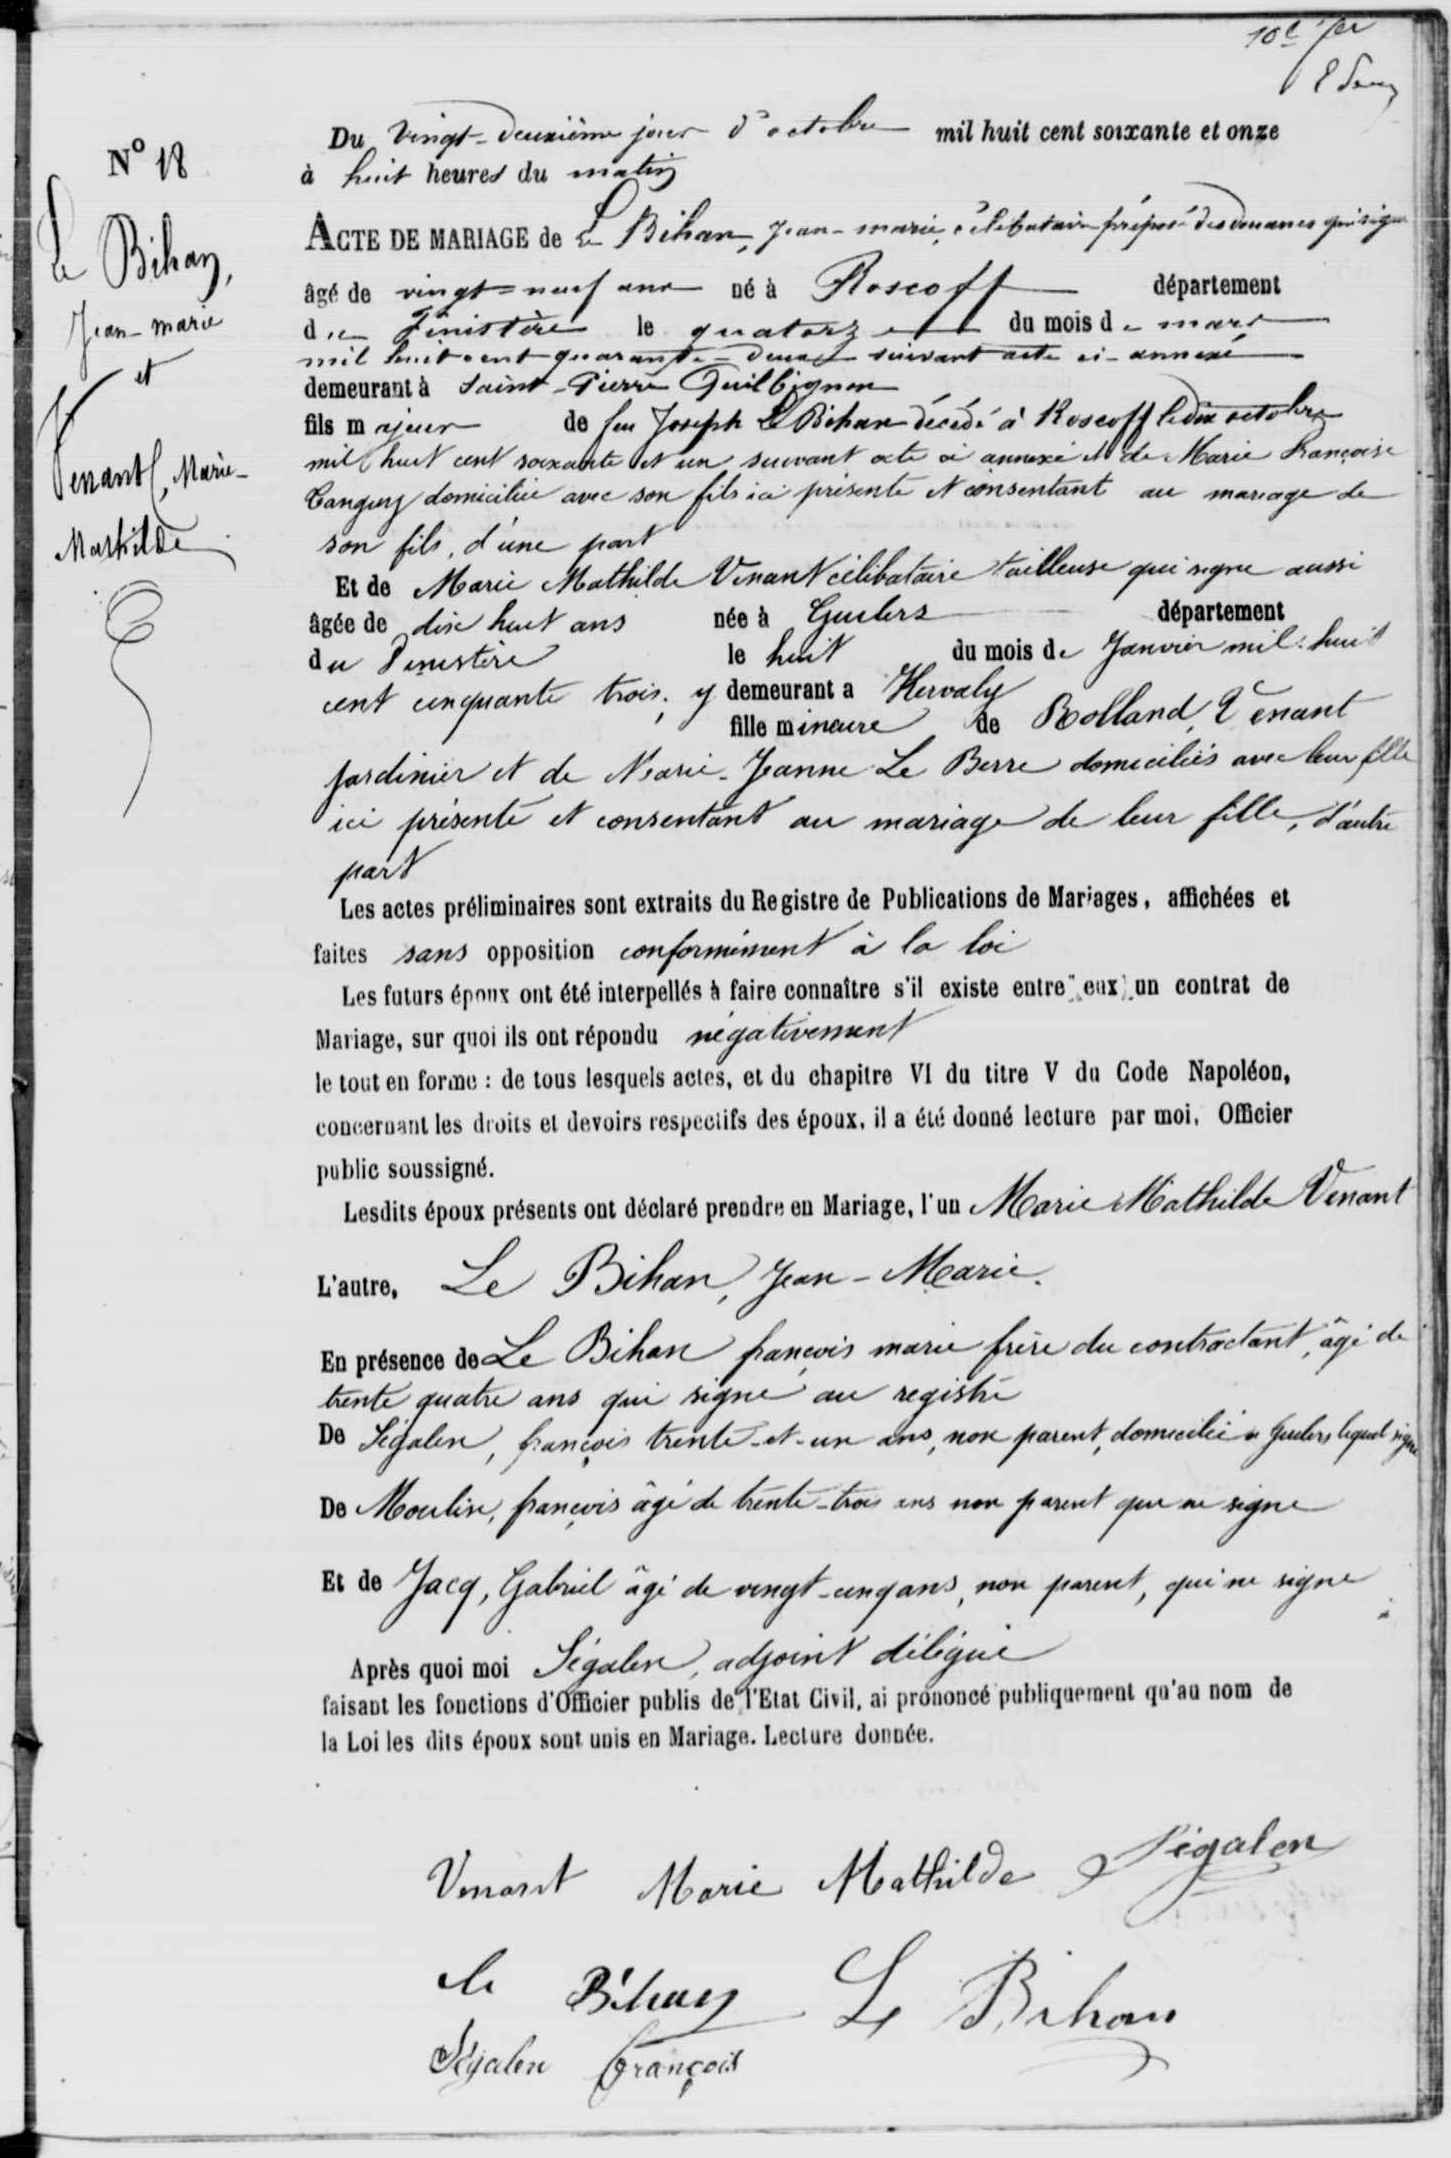 10e
N° 18
Le Bihan,
Jean-marie
et
Venant, Marie-
Mathilde
Du Vingt-deuxième jour d'octobre mil huit cent soixante et onze
à huit heures du matin
ACTE DE MARIAGE de Le Bihan, Jean-marie, célibataire préposé des douanes qui signe
âgé de vingt-neuf ans né à Roscoff département
du Finistère le quatorze du mois de mars
mil huit cent quarante-deux suivant acte ci-annexé
demeurant à Saint-Pierre Quilbignon
fils majeur de feu Joseph Le Bihan décédé à Roscoff le dix octobre
mil huit cent soixante et un suivant acte ci annexé et de Marie Françoise
Tanguy domiciliée avec son fils ici présente et consentant au mariage de
son fils, d'une part
Et de Marie Mathilde Venant célibataire tailleuse qui signe aussi
âgée de dix huit ans née à Guilers département
du Finistère le huit du mois de Janvier mil huit
cent cinquante trois, y demeurant a Kervaly
fille mineure de Rolland Venant
jardinier et de Marie-Jeanne Le Berre domiciliés avec leur fille
ici présente et consentant au mariage de leur fille, d'autre
part
Les actes préliminaires sont extraits du Registre de Publications de Mariages, affichées et
faites sans opposition conformément à la loi
Les futurs époux ont été interpellés à faire connaître s'il existe entre eux un contrat de
Mariage, sur quoi ils ont répondu négativement
le tout en forme : de tous lesquels actes, et du chapitre VI du titre V du Code Napoléon,
concernant les droits et devoirs respectifs des époux, il a été donné lecture par moi, Officier
public soussigné.
Lesdits époux présents ont déclaré prendre en Mariage, l'un Marie Mathilde Venant
L'autre, Le Bihan, Jean-Marie.
En présence de Le Bihan françois marie frère du contractant, âgé de
trente quatre ans qui signe au registre
De Ségalen, françois trente-et-un ans, non parent, domicilié a Guilers lequel signe
De Moulin, françois âgé de trente-trois ans non parent qui ne signe
Et de Jacq, Gabriel âgé de vingt-cinq ans, non parent, qui ne signe
Après quoi moi Ségalen, adjoint délégué
faisant les fonctions d'Officier publis de l'Etat Civil, ai prononcé publiquement qu'au nom de
la Loi les dits époux sont unis en Mariage. Lecture donnée.
Venant Marie Mathilde Ségalen
le Bihan Le Bihan
Ségalen François